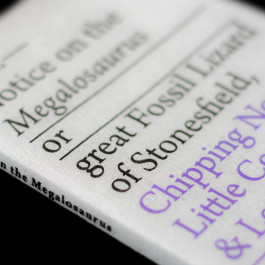 Notice on the
Megalosaurus
or
great Fossil Lizard
of Stonesfield,
Chipping No
Little Co
&
n the Megalosaurus